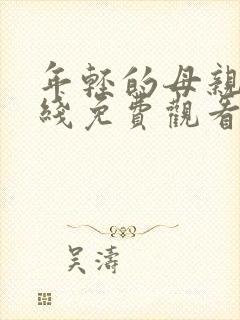 年輕的母親
綫免費觀看
吴濤